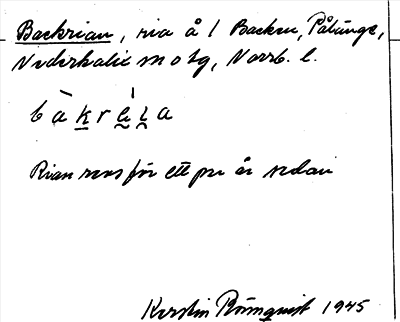 Backrian, ria å 1 Backen, Pålänge,
Nederkalix sn o tg, Norrb. l.
bàkrè̬i̬a
Rian revs för ett par år sedan
Kerstin Römquist 1945